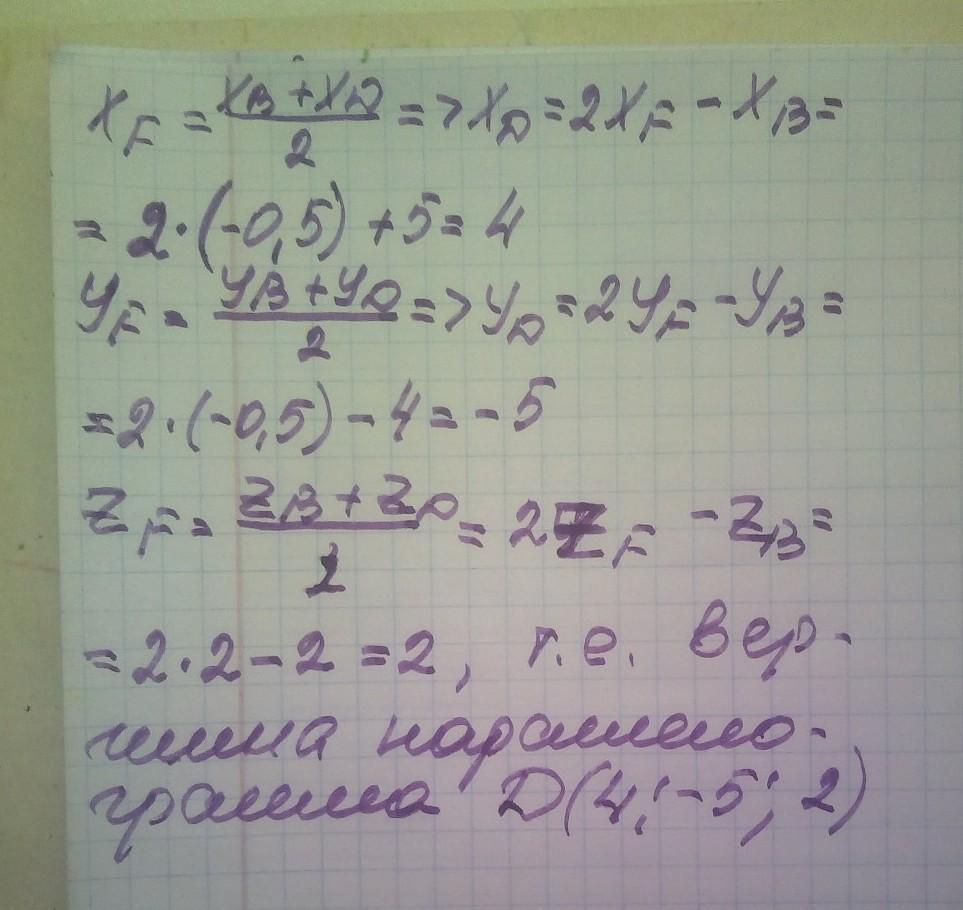 x_F = (x_B + x_D)/2 => x_D = 2x_F - x_B =
= 2·(-0,5) + 5 = 4
y_F = (y_B + y_D)/2 => y_D = 2y_F - y_B =
= 2·(-0,5) - 4 = -5
z_F = (z_B + z_D)/2 = 2z_F - z_B =
= 2·2 - 2 = 2, т.е. вер-
шина параллело-
грамма D(4; -5; 2)